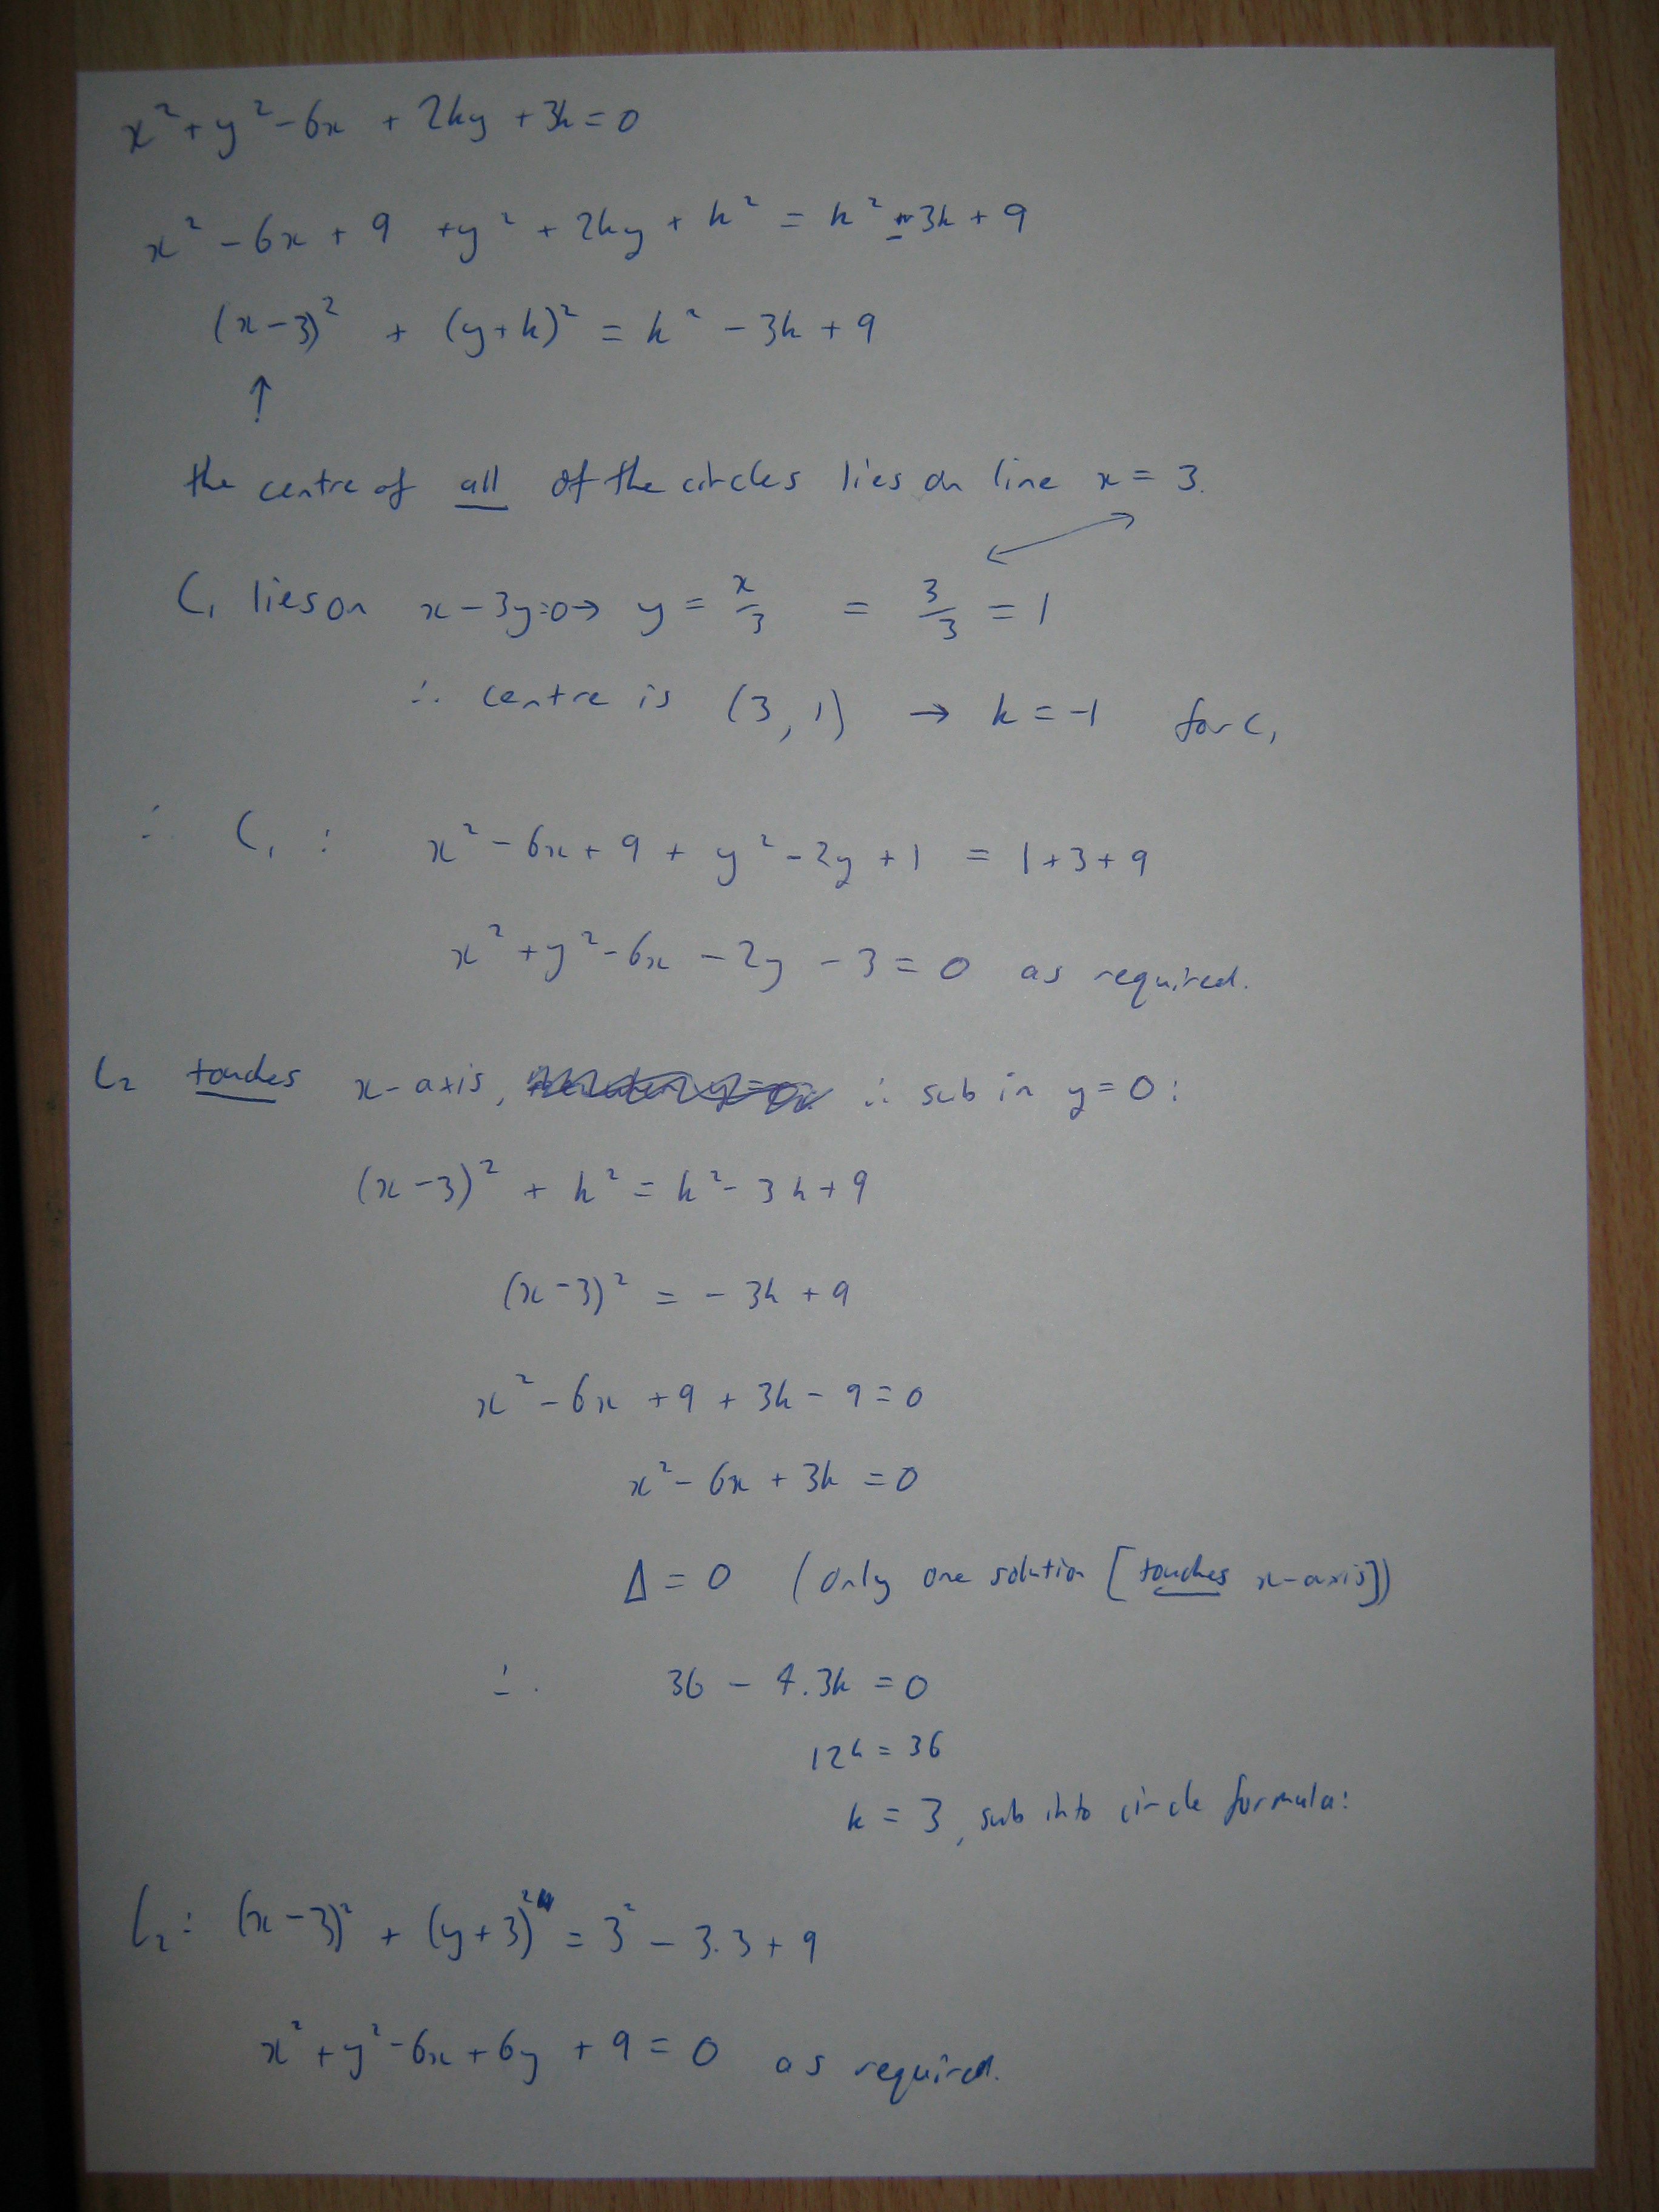 x² + y² - 6x + 2ky + 3k = 0
x² - 6x + 9 + y² + 2ky + k² = k² - 3k + 9
(x - 3)² + (y + k)² = k² - 3k + 9
↑
the centre of all of the circles lies on line x = 3.
C₁ lies on x - 3y = 0 → y = x/3 = 3/3 = 1
∴ centre is (3, 1) → k = -1 for C₁
∴ C₁ : x² - 6x + 9 + y² - 2y + 1 = 1 + 3 + 9
x² + y² - 6x - 2y - 3 = 0 as required.
C₂ touches x-axis, ∴ sub in y = 0 :
(x - 3)² + k² = k² - 3k + 9
(x - 3)² = - 3k + 9
x² - 6x + 9 + 3k - 9 = 0
x² - 6x + 3k = 0
Δ = 0 (only one solution [touches x-axis])
∴ 36 - 4.3k = 0
12k = 36
k = 3, sub into circle formula:
C₂ : (x - 3)² + (y + 3)² = 3² - 3.3 + 9
x² + y² - 6x + 6y + 9 = 0 as required.